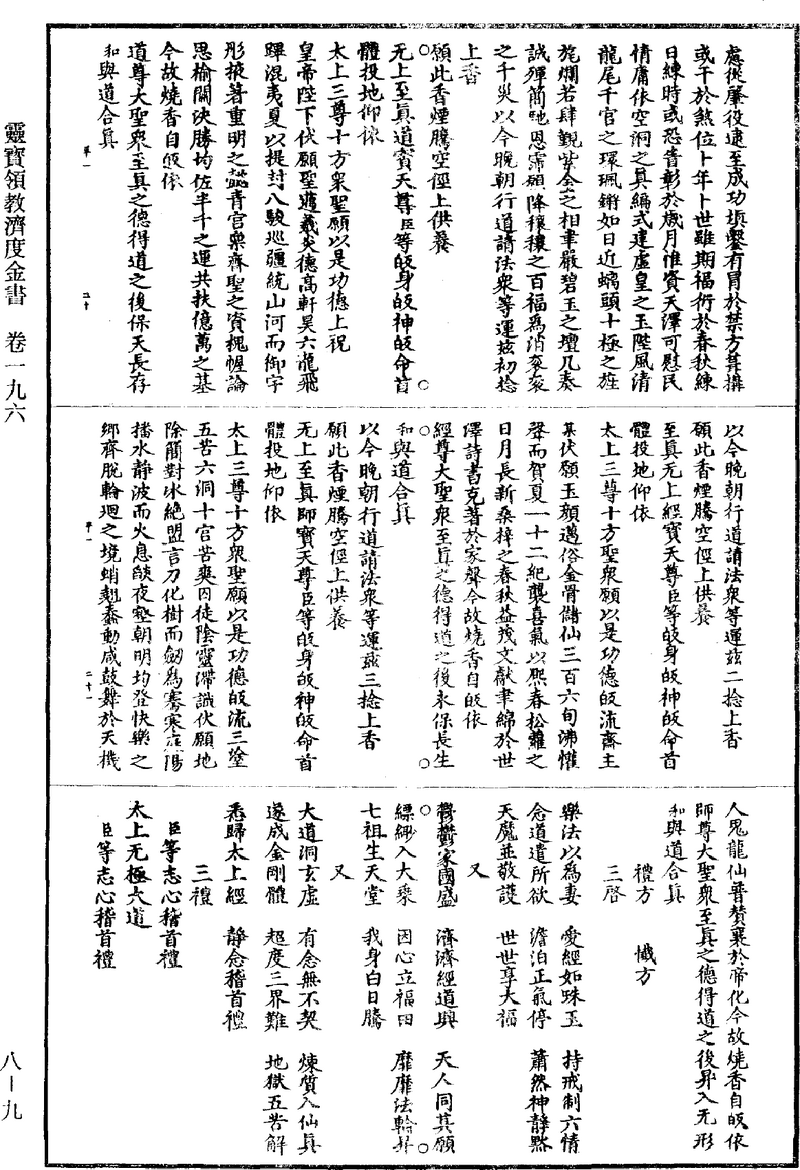 處從肇役遠至成功塤鑿有冒於禁方葺構
或干於煞位卜年卜世雖期福衍於春秋練
日練時或恐眚彰於歲月惟資天澤可慰民
情庸依空洞之真編式建虛皇之玉陛風清
龍尾千官之環珮鏘如日近螭頭十極之旌
旄爛若肆覲紫金之相聿嚴碧玉之壇几奏
誠殫簡馳恩霈頒降穰穰之百福爲消衮衮
之千災以今晚朝行道請法衆等運茲初捻
上香
願此香煙騰空徑上供養
无上至真道寳天尊臣等皈身皈神皈命首
體投地仰依
太上三尊十方衆聖願以是功德上祝
皇帝陛下伏願聖邁羲炎德高軒昊六龍飛
蹕混夷夏以提封八駿巡疆統山河而御宇
彤掖著重明之懿青宫樂齊聖之資槐幄論
思榆關決勝均佐半千之運共扶億萬之基
今故燒香自皈依
道尊大聖衆至真之德得道之後保天長存
和與道合真
平一 二十
以今晚朝行道請法衆等運茲二捻上香
願此香煙騰空徑上供養
至真无上經寳天尊臣等皈身皈神皈命首
體投地仰依
太上三尊十方聖衆願以是功德皈流齋主
某伏願玉顏邁俗金骨儲仙三百六旬沸懽
聲而賀夏一十二紀襲喜氣以熙春松蘿之
日月長新桑梓之春秋益茂文獻聿綿於世
澤詩書克著於家聲今故燒香自皈依
經尊大聖衆至真之德得道之後永保長生
和與道合真
以今晚朝行道請法衆等運茲三捻上香
願此香煙騰空徑上供養
无上至真師寳天尊臣等皈身皈神皈命首
體投地仰依
太上三尊十方衆聖願以是功德皈流三塗
五苦六洞十官苦爽囚徒陰靈滯識伏願地
除簡對氷絶盟言刀化樹而劒爲騫寒庭陽
播水静波而火息燄夜壑朝明均登快樂之
鄉齊脫輪廻之境蛸翹蠢動咸鼓舞於天機
平一 二十一
人鬼龍仙普賛襄於帝化今故燒香自皈依
師尊大聖衆至真之德得道之後昇入无形
和與道合真
禮方 懺方
三啓
樂法以為妻 愛經如珠玉 持戒制六情
念道遣所欲 澹泊正氣停 蕭然神靜黙
天魔並敬護 世世享大福
又
欝欝家國盛 濟濟經道興 天人同其願
縹緲入大乘 因心立福田 靡靡法輪昇
七祖生天堂 我身白日騰
又
大道洞玄虛 有念無不契 煉質入仙真
遂成金剛體 超度三界難 地獄五苦解
悉歸太上經 靜念稽首禮
三禮
臣等志心稽首禮
太上无極大道
臣等志心稽首禮
靈寶領教濟度金書 卷一九六
八—九